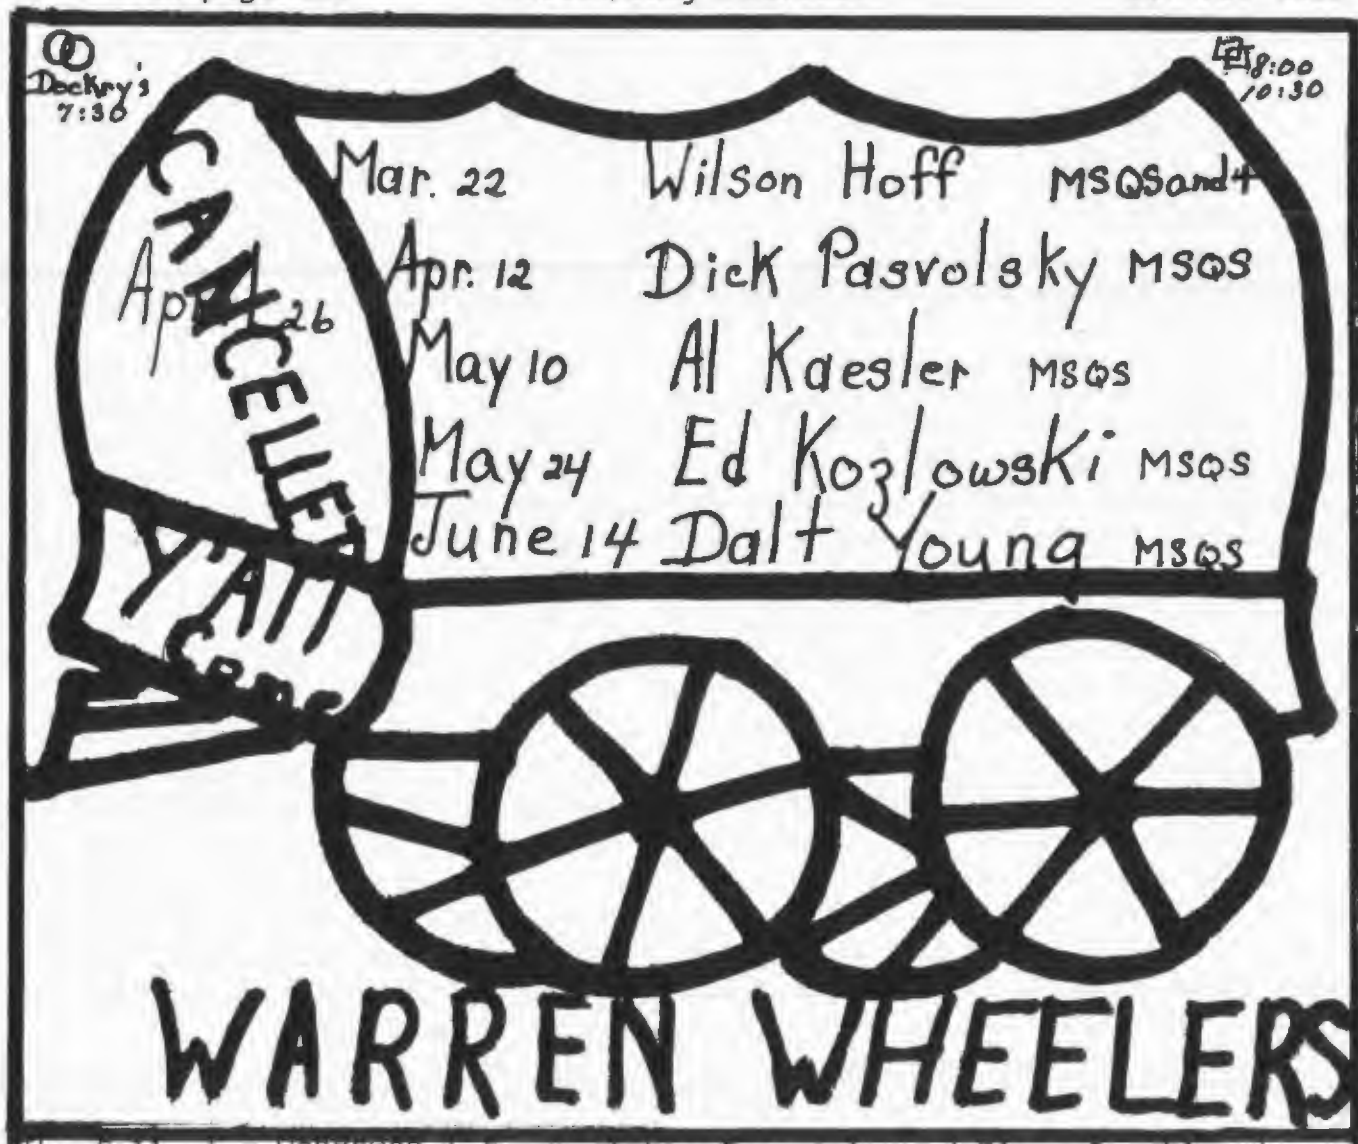 Dockry's
7:30
8:00
10:30
Mar. 22 Wilson Hoff MSQS and +
Apr. 12 Dick Pasvolsky MSQS
May 10 Al Kaesler MSQS
May 24 Ed Kozlowski MSQS
June 14 Dalt Young MSQS
April 26
CANCELLED
Y'All
Come
WARREN WHEELERS